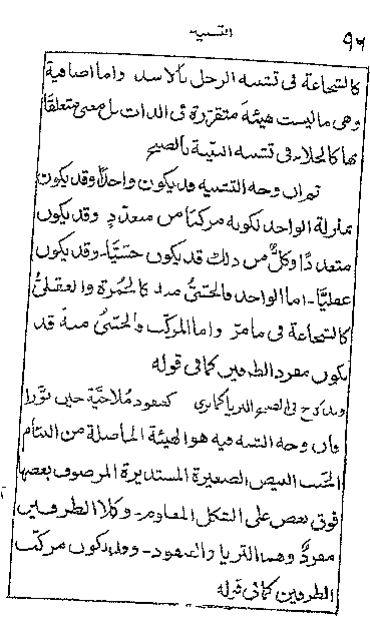 التشبيه
٩٦
كالشجاعة فى تشبيه الرجل بالاسد واما اضافية
وهى ما ليست هيئة متقررة فى الذات بل معنى متعلقا
بها كالجلاء فى تشبيه البيّنة بالصبح
ثم ان وجه التشبيه قد يكون واحدًا وقد يكون
بمنزلة الواحد لكونه مركبًا من متعددٍ وقد يكون
متعددًا وكلٌّ من ذلك قد يكون حسّيًا وقد يكون
عقليًّا۔ اما الواحد فالحسّىُّ منه كالحُمرة والعقلىُّ
كالشجاعة فى ما مرّ واما المركّب فالحسّىُ منه قد
يكون مفرد الطرفين كما فى قوله
وقد لاح فى الصبح الثريا كما ترى كعنقود مُلّاحيّة حين نوّرا
فان وجه الشبه فيه هو الهيئة الحاصلة من التئام
الحبب البيض الصغيرة المستديرة المرصوف بعضها
فوق بعض على الشكل المعلوم۔ وكلا الطرفين
مفردٌ وهما الثريا والعنقود۔ وقد يكون مركب
الطرفين كما فى قوله